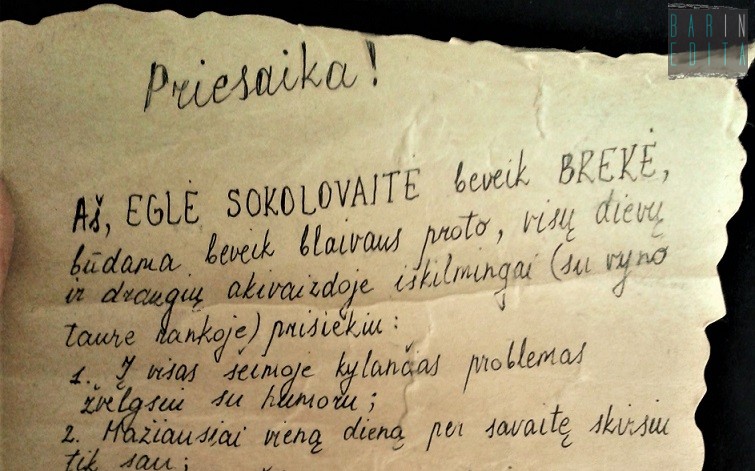 BARIN
EDITA
Priesaika!
Aš, EGLĖ SOKOLOVAITĖ beveik BREKĖ,
būdama beveik blaivaus proto, visų dievų
ir draugių akivaizdoje iškilmingai (su vyno
taure rankoje) prisiekiu:
1. Į visas šeimoje kylančas problemas
žvelgsiu su humoru;
2. Mažiausiai vieną dieną per savaitę skirsiu
tik sau;